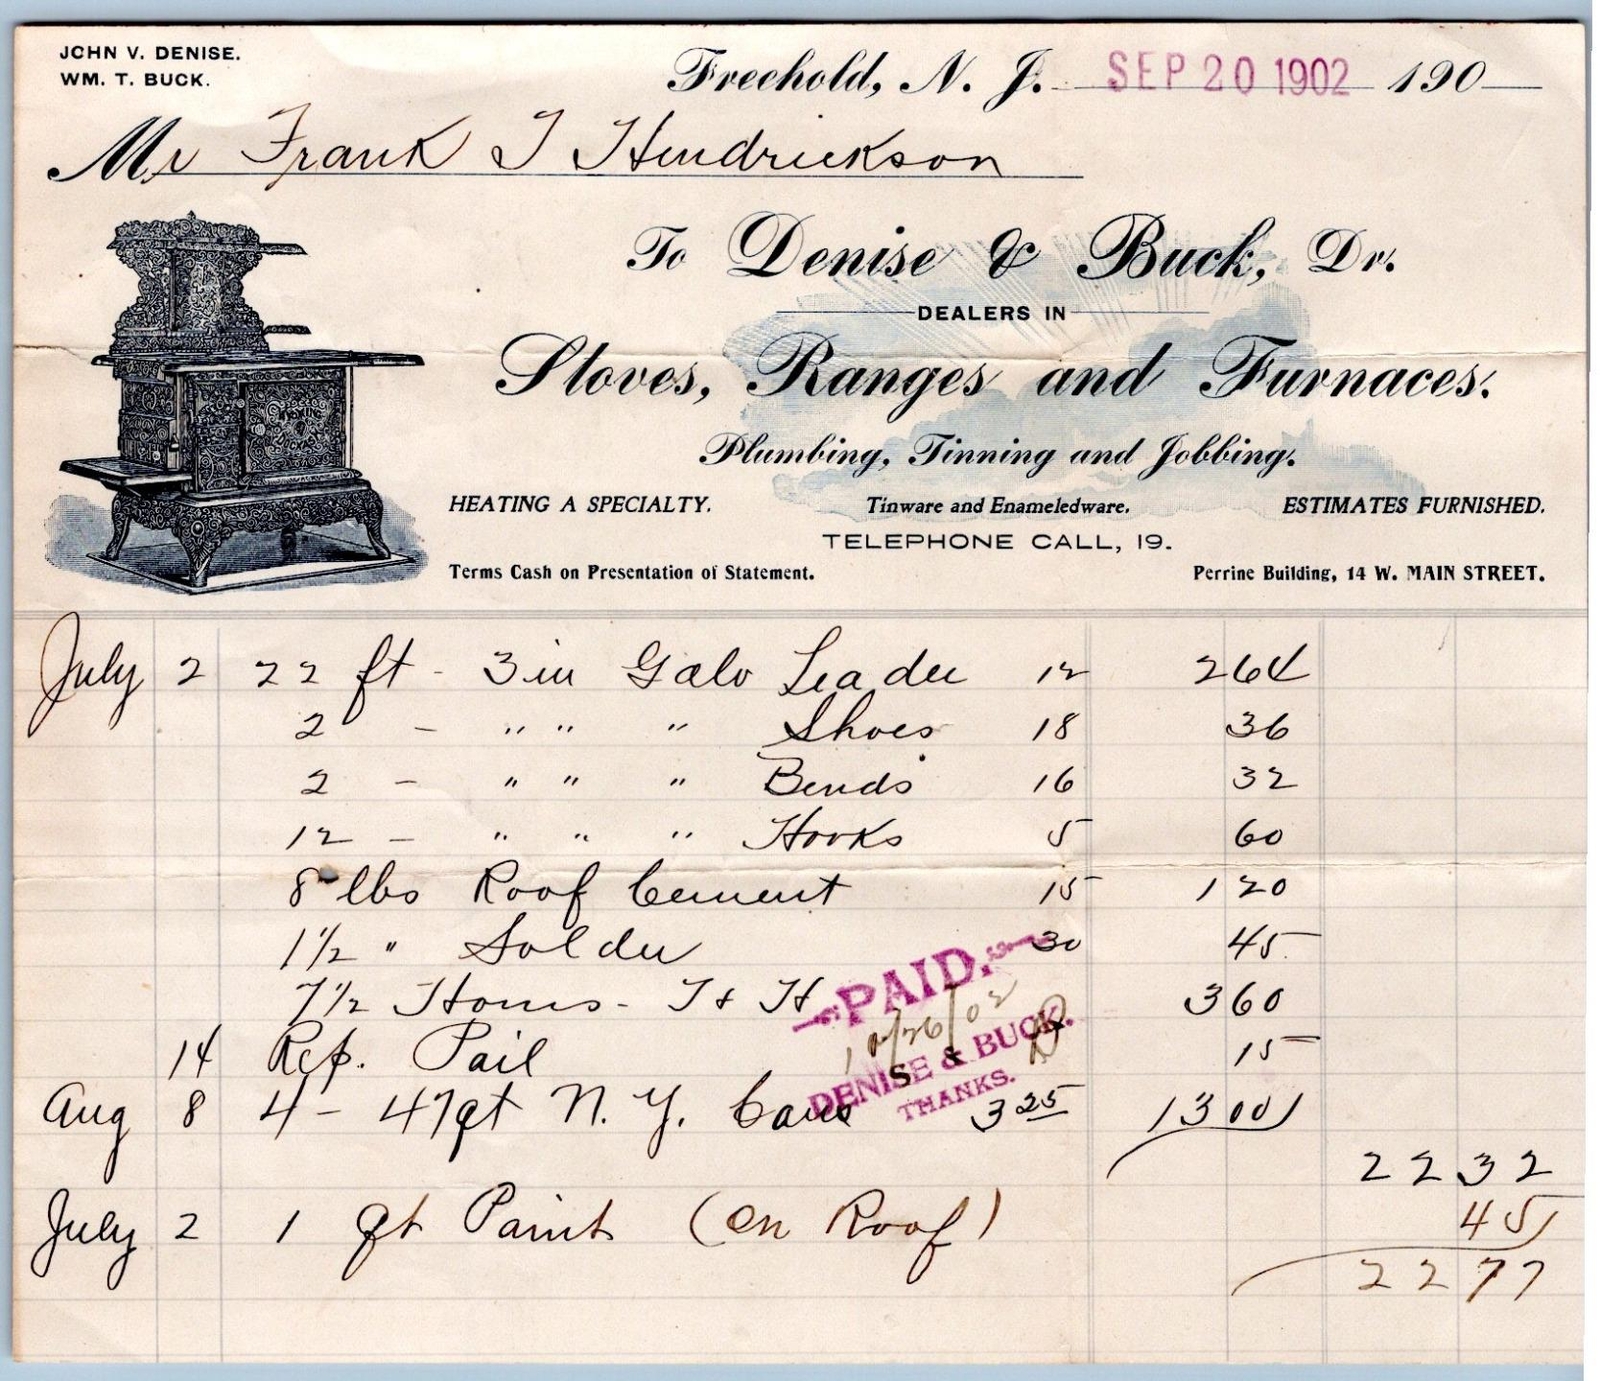 JOHN V. DENISE.
WM. T. BUCK.
Freehold, N. J. SEP 20 1902 190
Mr Frank T Hendrickson
To Denise & Buck, Dr.
DEALERS IN
Stoves, Ranges and Furnaces.
Plumbing, Tinning and Jobbing.
HEATING A SPECIALTY. Tinware and Enameledware. ESTIMATES FURNISHED.
TELEPHONE CALL, 19.
Terms Cash on Presentation of Statement. Perrine Building, 14 W. MAIN STREET.
July 2 22 ft - 3 in Galv Leader 12 2 64
2 - " " " Shoes 18 36
2 - " " " Bends 16 32
12 - " " " Hooks 5 60
8 lbs Roof Cement 15 1 20
1 1/2 " Solder 30 45
7 1/2 Hours - T & H 3 60
14 Rep. Pail 15
Aug 8 4 - 47 qt N. Y. Cans 3 25 13 00
22 32
July 2 1 qt Paint (on Roof) 45
22 77
PAID.
10/26/02
DENISE & BUCK.
THANKS.